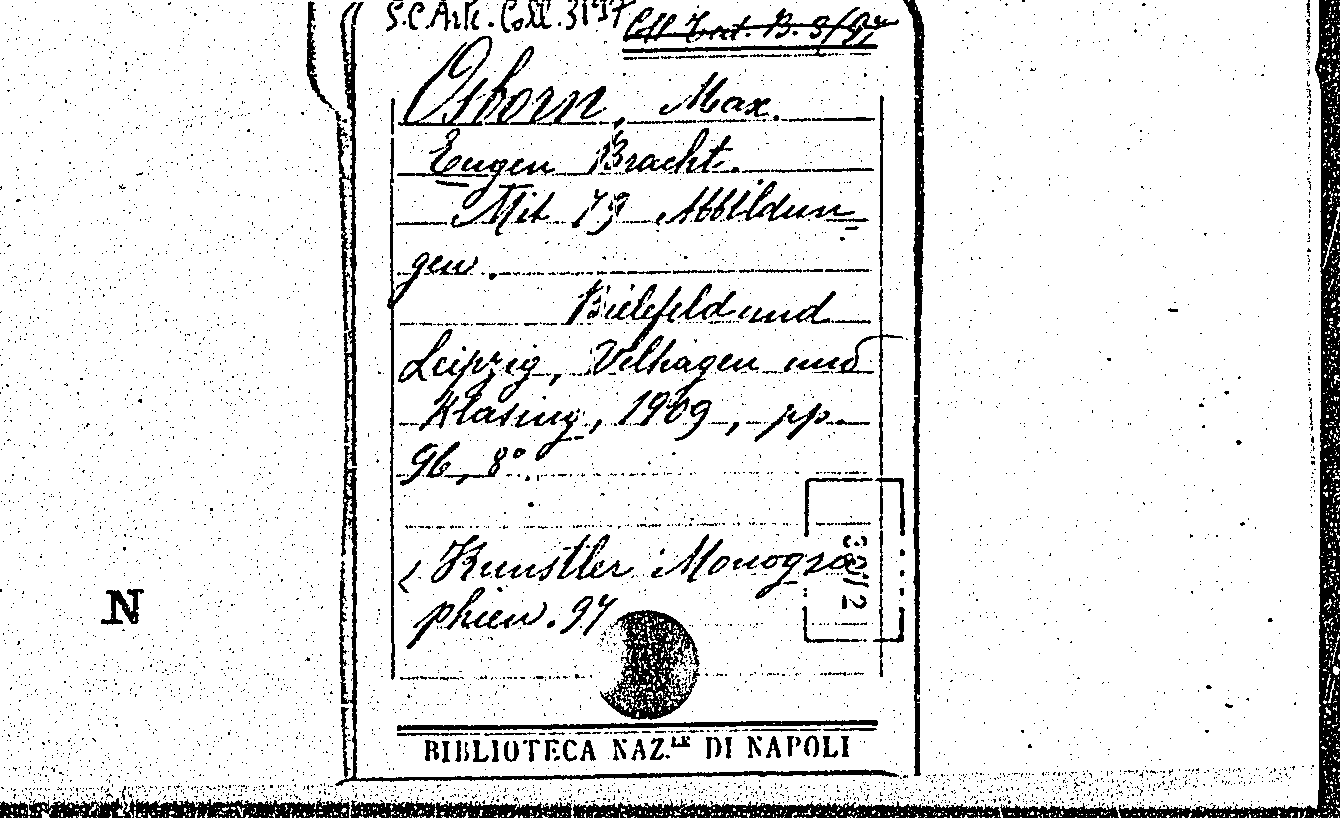 S.C. Arte. Coll. 31/97
Coll. B. 9/97
Osborn, Max.
Eugen Bracht.
Mit 79 Abbildun-
gen.
Bielefeld und
Leipzig, Velhagen und
Klasing, 1909, pp.
96, 8°.
(Kunstler Monogra
phien. 97
30/12
N
BIBLIOTECA NAZ.LE DI NAPOLI